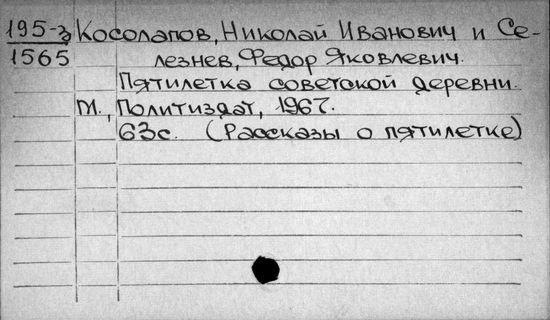 195-3 Косолапов, Николай Иванович и Се-
1565 лезнев, Федор Яковлевич.
Пятилетка советской деревни.
М., Политиздат, 1967.
63с. (Рассказы о пятилетке)